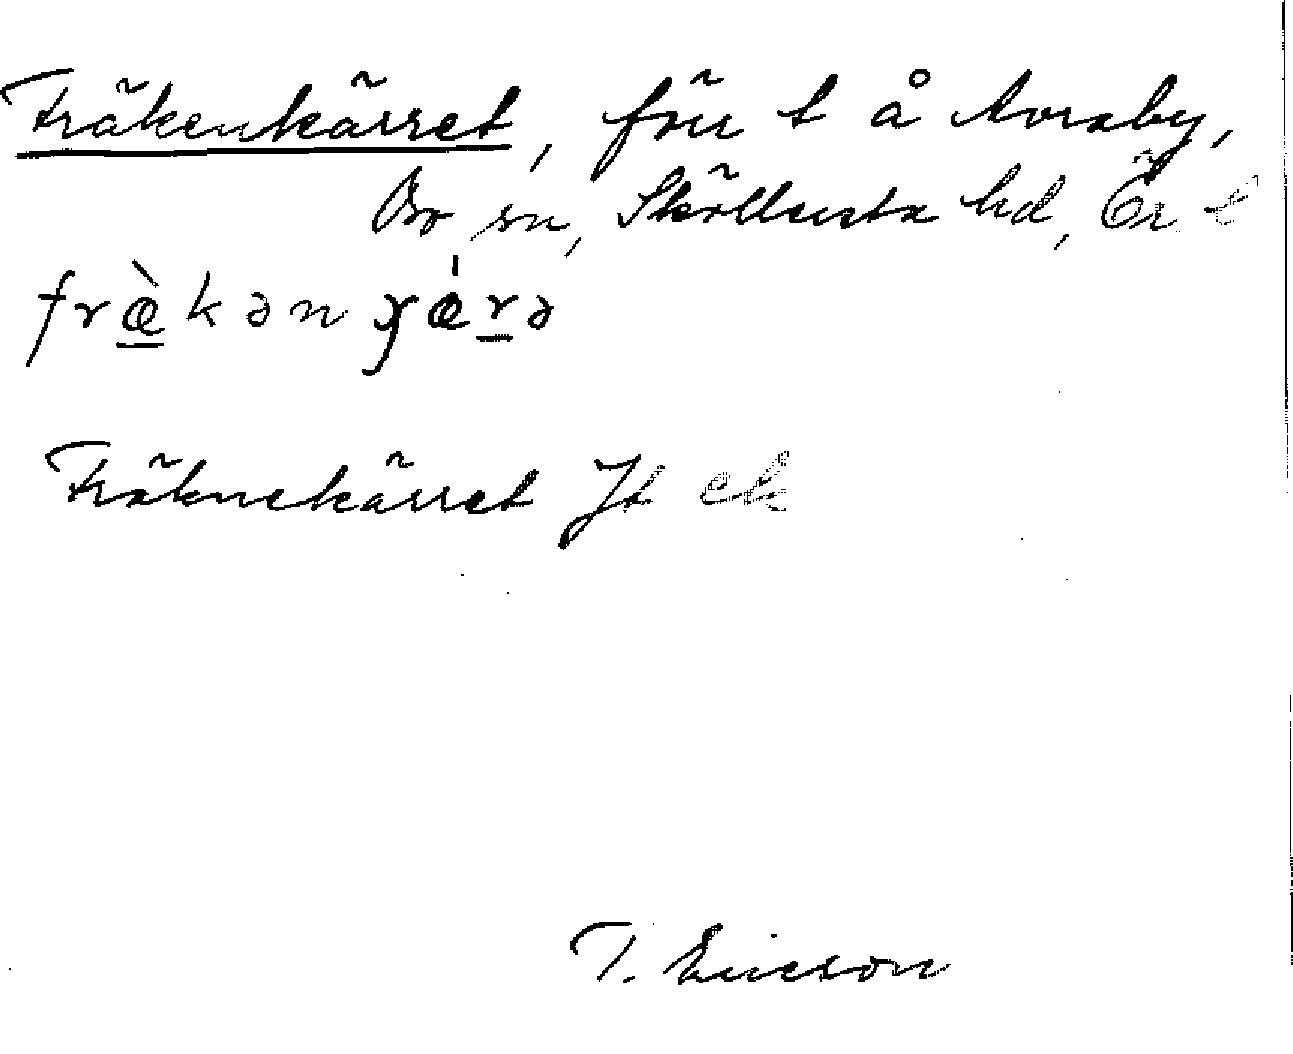 Fräkenkärret, förr t å Avraby,
Bo sn, Sköllersta hd, Ör l
fræ̀kən ɟǽrə
Fräknekärret Jt ek
T. Ericson